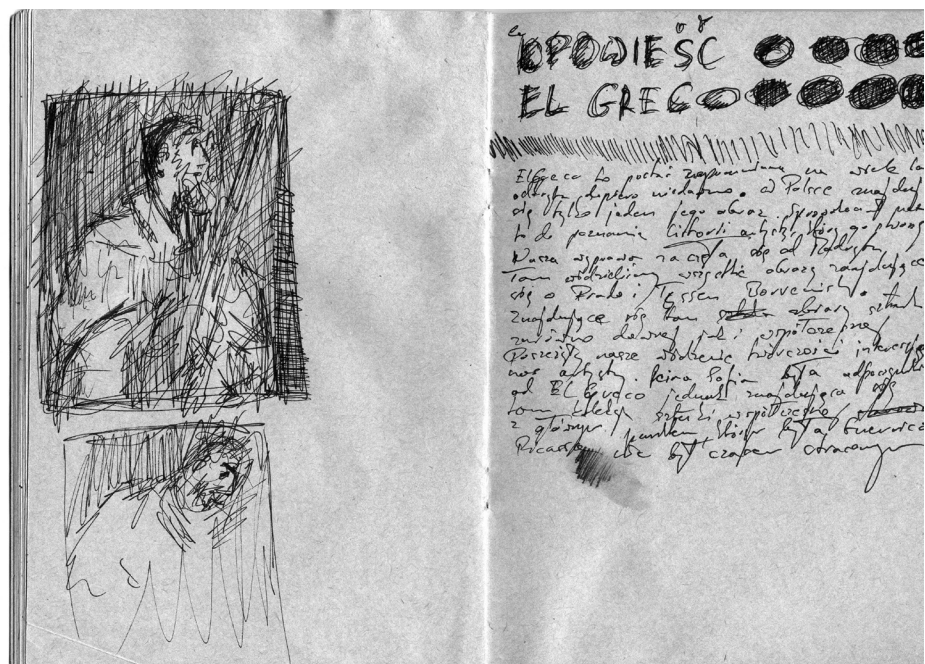 OPOWIEŚĆ O
EL GRECO
El Greco to postać zapomniana na wiele la
odkryta dopiero niedawno. W Polsce znajduj
się tylko jeden jego obraz. Spowodował
to do poznania historii artysty, który go
Nasza wyprawa zaczęła się od Madrytu
Tam widzieliśmy wszystkie obrazy znajdujące
się w Prado i Tyssen Bornemisza.
Znajdujące się tam obrazy sztuki
zarówno dawnej jak i współczesnej
nasze widzenie twórczości interesują
nas artysty. Reina Sofia była odpoczynki
od El Greco jednak znajdująca się
tam kolekcja sztuki współczesnej
z głównym punktem, którym była Guernica
Picassa nie był czasem straconym